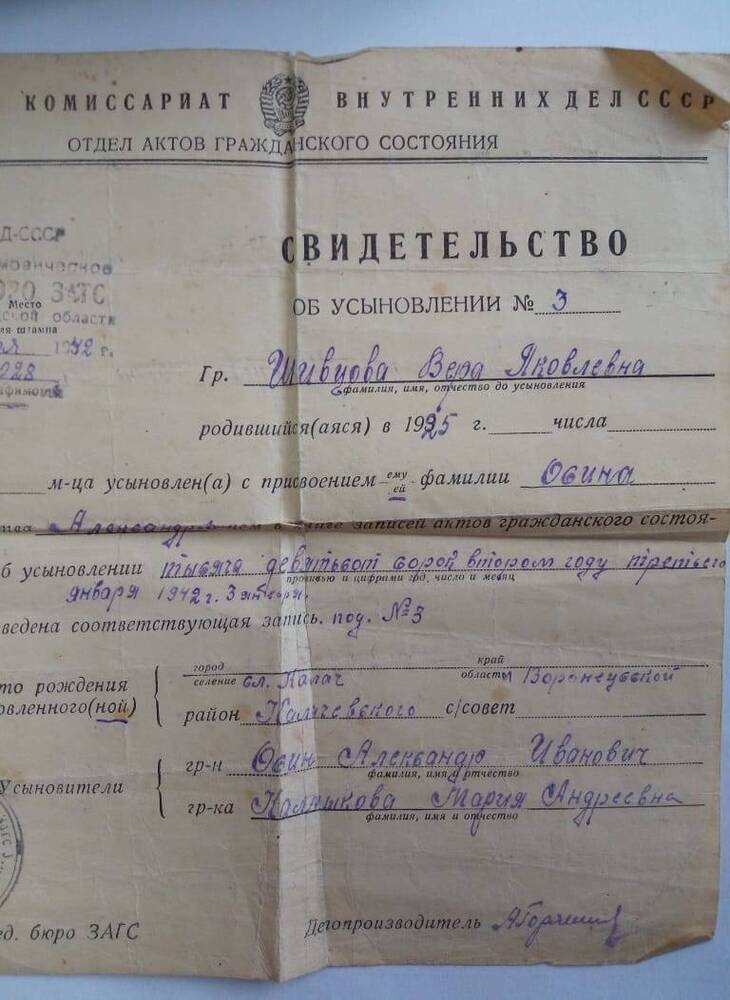 КОМИССАРИАТ ВНУТРЕННИХ ДЕЛ СССР
ОТДЕЛ АКТОВ ГРАЖДАНСКОГО СОСТОЯНИЯ
Д-СССР
ЗАГС
Место
ской области
ия штампа
1942 г.
028
СВИДЕТЕЛЬСТВО
ОБ УСЫНОВЛЕНИИ № 3
Гр. Шивцова Вера Яковлевна
фамилия, имя, отчество до усыновления
родившийся(аяся) в 1925 г. числа
м-ца усыновлен(а) с присвоением ему ей фамилии Осина
тва Александров чем в книге записей актов гражданского состоя-
б усыновлении тысяча девятьсот сорок втором году третьего
прописью и цифрами год, число и месяц
января 1942 г. 3 января
ведена соответствующая запись. под. № 3
то рождения
овленного(ной)
город край
селение сл. Калач области Воронежской
район Калачевского с/совет
Усыновители
гр-н Осин Александр Иванович
фамилия, имя и отчество
гр-ка Калашкова Мария Андреевна
фамилия, имя и отчество
ед. бюро ЗАГС Делопроизводитель